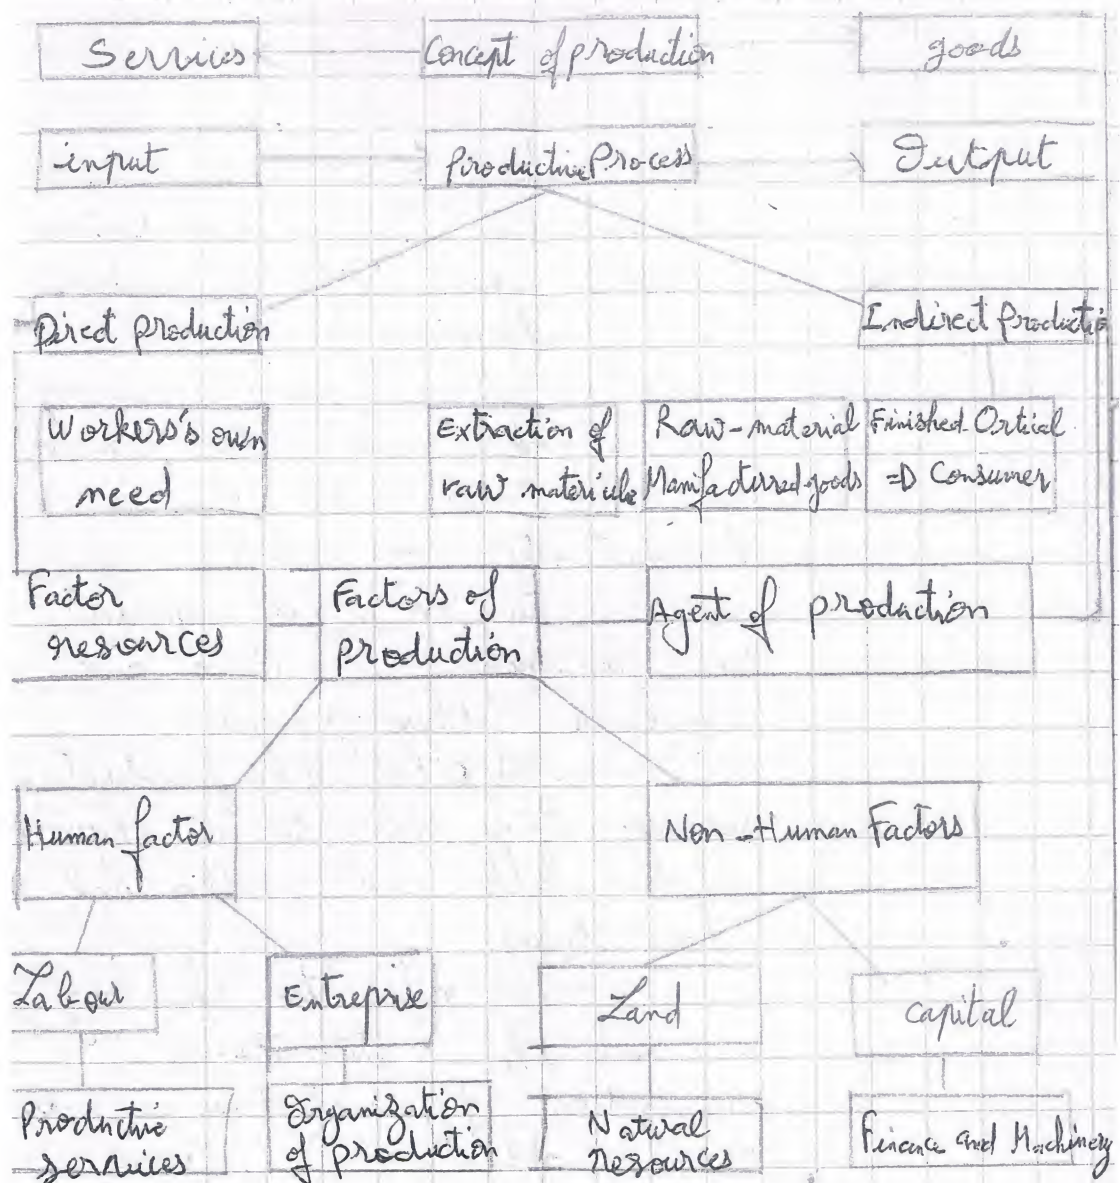 Services
Concept of production
goods
input
Productive Process
Output
Direct production
Indirect production
Workers's own
need
Extraction of
raw materials
Raw-material
Manifacturred goods
Finished Ortical
=D Consumer
Factor
resources
Factors of
production
Agent of production
Human factor
Non-Human Factors
Labour
Entreprise
Land
capital
Productive
services
Organization
of production
Natural
resources
Finance and Machinery